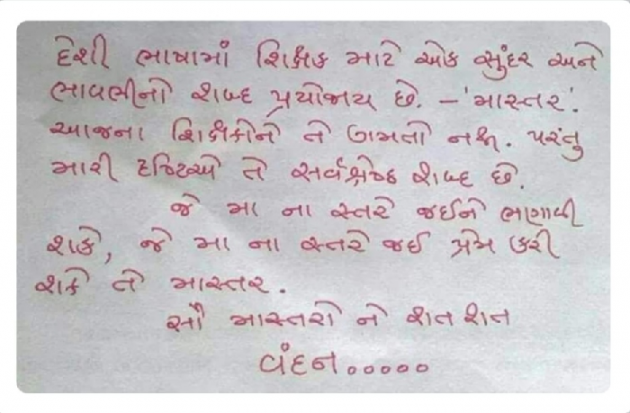 દેશી ભાષામાં શિક્ષક માટે એક સુંદર અને
ભાવભીનો શબ્દ પ્રયોજાય છે. - 'માસ્તર'.
આજના શિક્ષકોને તે ગમતો નથી. પરંતુ
મારી દૃષ્ટિએ તે સર્વશ્રેષ્ઠ શબ્દ છે.
જે મા ના સ્તરે જઈને ભણાવી
શકે, જે મા ના સ્તરે જઈ પ્રેમ કરી
શકે તે માસ્તર.
સૌ માસ્તરો ને શત શત
વંદન.....